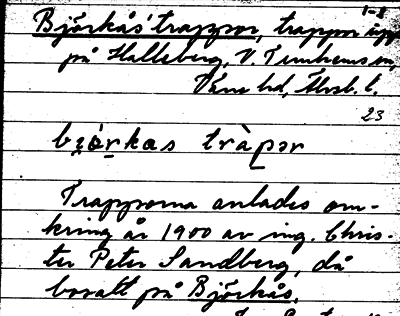 1-8
Björkås' trappor, trappor upp
på Halleberg, V. Tunhems sn,
Väne hd, Älvsb. l.
23
bjǫ̀rkas tràpər
Trapporna anlades om-
kring år 1900 av ing. Chris-
ter Peter Sandberg, då
bosatt på Björkås.